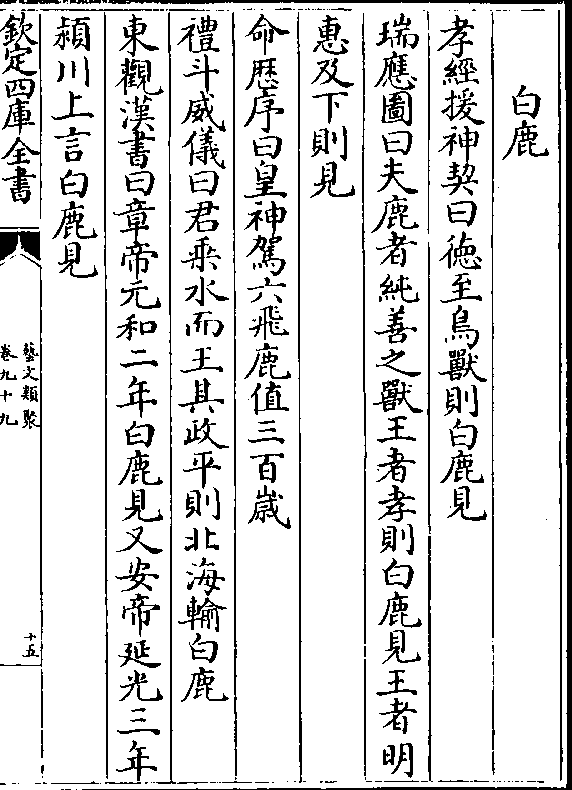 白鹿
孝經援神契曰德至鳥獸則白鹿見
瑞應圖曰夫鹿者純善之獸王者孝則白鹿見王者明
惠及下則見
命歷序曰皇神駕六飛鹿值三百歲
禮斗威儀曰君乘水而王其政平則北海輸白鹿
東觀漢書曰章帝元和二年白鹿見又安帝延光三年
潁川上言白鹿見
欽定四庫全書
藝文類聚
卷九十九
十五